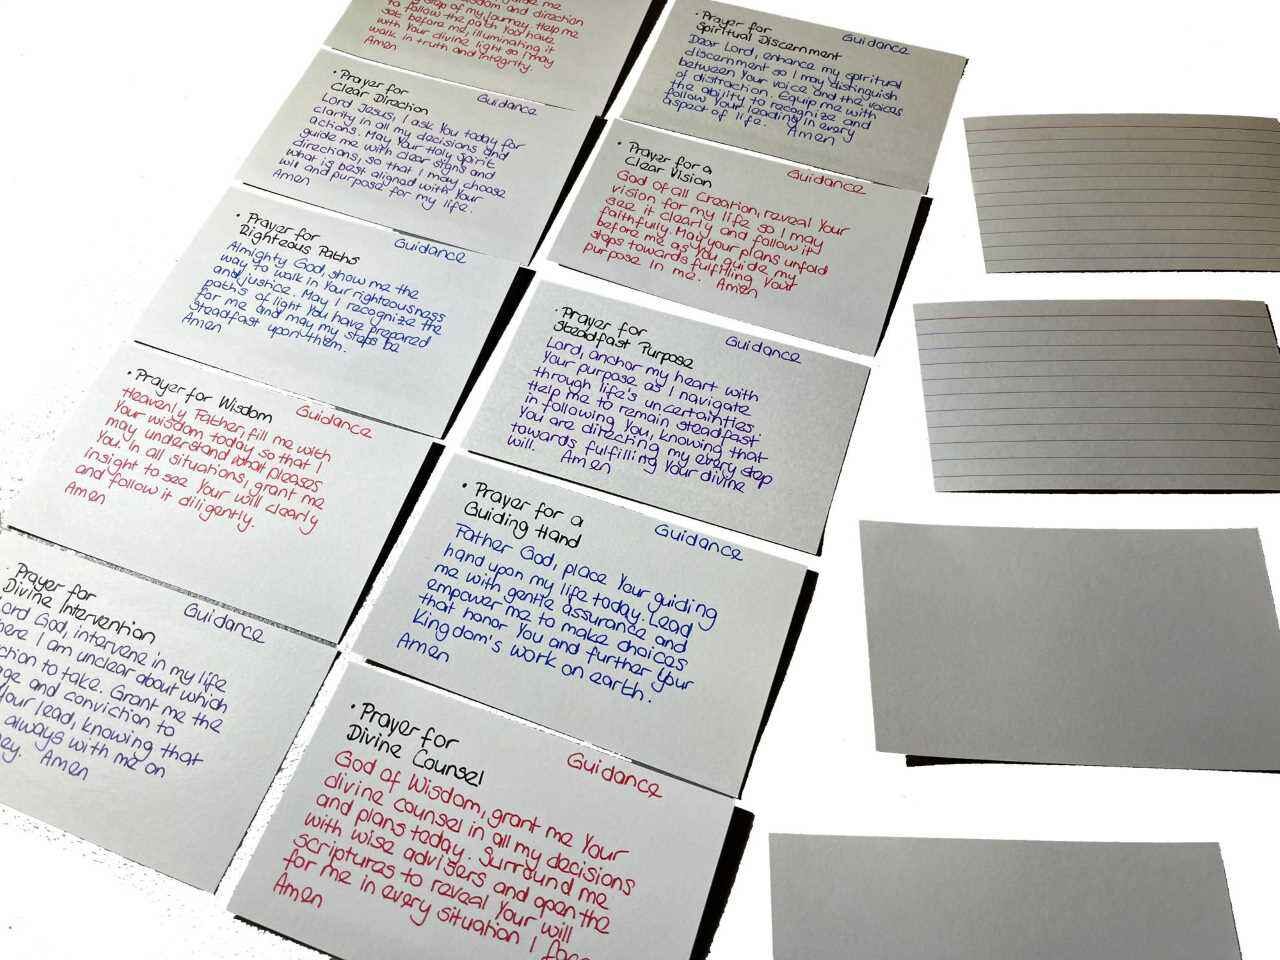 guide me
wisdom and direction
step of my journey. Help me
to follow the path You have
set before me, illuminating it
with Your divine light so I may
walk in truth and integrity.
Amen
• Prayer for
Clear Direction
Guidance
Lord Jesus, I ask You today for
clarity in all my decisions and
actions. May Your Holy Spirit
guide me with clear signs and
directions, so that I may choose
what is best aligned with Your
will and purpose for my life.
Amen
• Prayer for
Righteous Paths
Guidance
Almighty God, show me the
way to walk in Your righteousness
and justice. May I recognize the
paths of light You have prepared
for me and may my steps be
steadfast upon them.
Amen
• Prayer for Wisdom
Guidance
Heavenly Father, fill me with
Your wisdom today so that I
may understand what pleases
You. In all situations, grant me
insight to see Your will clearly
and follow it diligently.
Amen
• Prayer for
Divine Intervention
Guidance
Lord God, intervene in my life
where I am unclear about which
to take. Grant me the
and conviction to
your lead, knowing that
always with me on
Amen
• Prayer for
Spiritual Discernment
Guidance
Dear Lord, enhance my spiritual
discernment so I may distinguish
between Your voice and the voices
of distraction. Equip me with
the ability to recognize and
follow Your leading in every
aspect of life. Amen
• Prayer for a
Clear Vision
Guidance
God of all Creation, reveal Your
vision for my life so I may
see it clearly and follow it
faithfully. May your plans unfold
before me as You guide my
steps towards fulfilling Your
purpose in me. Amen
• Prayer for
Steadfast Purpose
Guidance
Lord, anchor my heart with
Your purpose as I navigate
through life's uncertainties
Help me to remain steadfast
in following You, knowing that
You are directing my every step
towards fulfilling Your divine
will. Amen
• Prayer for a
Guiding Hand
Guidance
Father God, place Your guiding
hand upon my life today. Lead
me with gentle assurance and
empower me to make choices
that honor You and further Your
Kingdom's work on earth.
Amen
• Prayer for
Divine Counsel
Guidance
God of Wisdom, grant me Your
divine counsel in all my decisions
and plans today. Surround me
with wise advisers and open the
scriptures to reveal Your will
for me in every situation I face
Amen